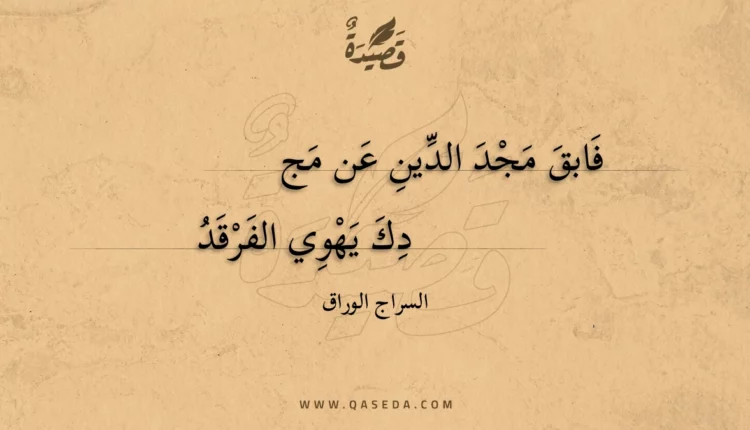 قَصِيْدَةٌ
فَابقَ مَجْدَ الدِّينِ عَن مَج
دِكَ يَهْوِي الفَرْقَدُ
السراج الوراق
WWW.QASEDA.COM